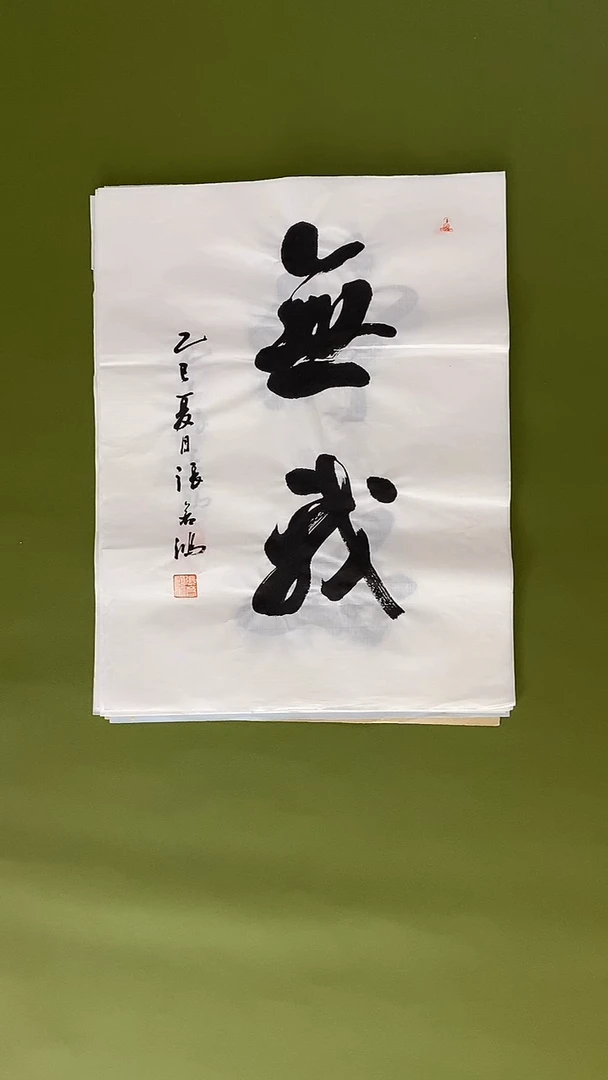 無我
乙巳夏月張若鴻